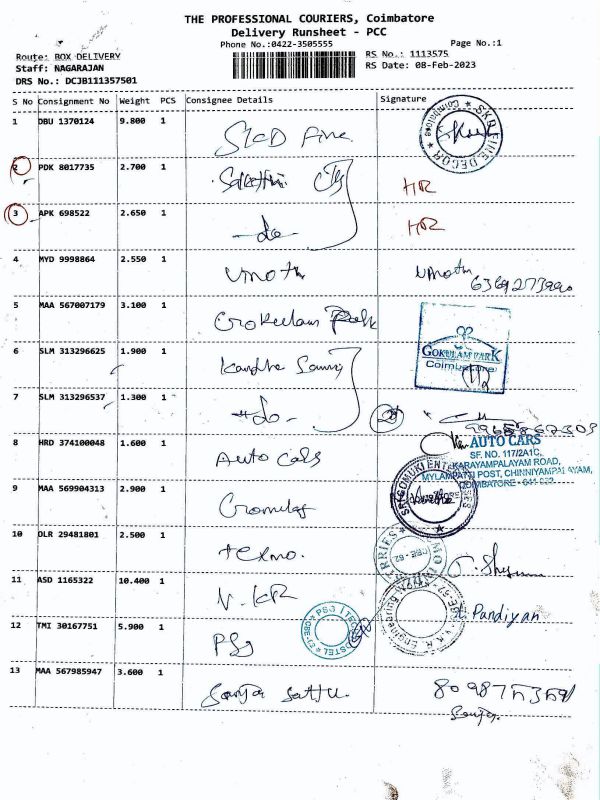 THE PROFESSIONAL COURIERS, Coimbatore
Delivery Runsheet - PCC
Phone No.:0422-3505555
Page No.:1
Route: BOX DELIVERY
RS No.: 1113575
Staff: NAGARAJAN
RS Date: 08-Feb-2023
DRS No.: DCJB111357501
S No Consignment No Weight PCS Consignee Details Signature
1 DBU 1370124 9.800 1
SKD FINE DECOR * Coimbatore *
2 PDK 8017735 2.700 1 Sakthi HR
3 APK 698522 2.650 1 -do- HR
4 MYD 9998864 2.550 1 Vinoth Vinoth
5 MAA 567007179 3.100 1 Gokulam Park
GOKULAM PARK
Coimbatore
6 SLM 313296625 1.900 1 Kandha Samy
7 SLM 313296537 1.300 1 -do- 2
8 HRD 374100048 1.600 1 Auto Cars
AUTO CARS
SF. NO. 117/2A1C,
KARAYAMPALAYAM ROAD,
MYLAMPATTI POST, CHINNIYAMPALAYAM,
COIMBATORE - 641 062.
9 MAA 569904313 2.900 1 Gomuki
SRI GOMUKI ENTERPRISES
10 OLR 29481801 2.500 1 Texmo.
11 ASD 1165322 10.400 1 V.KR Pandiyan
12 TMI 30167751 5.900 1 PSG
PSG iTECH HOSTEL
13 MAA 567985947 3.600 1